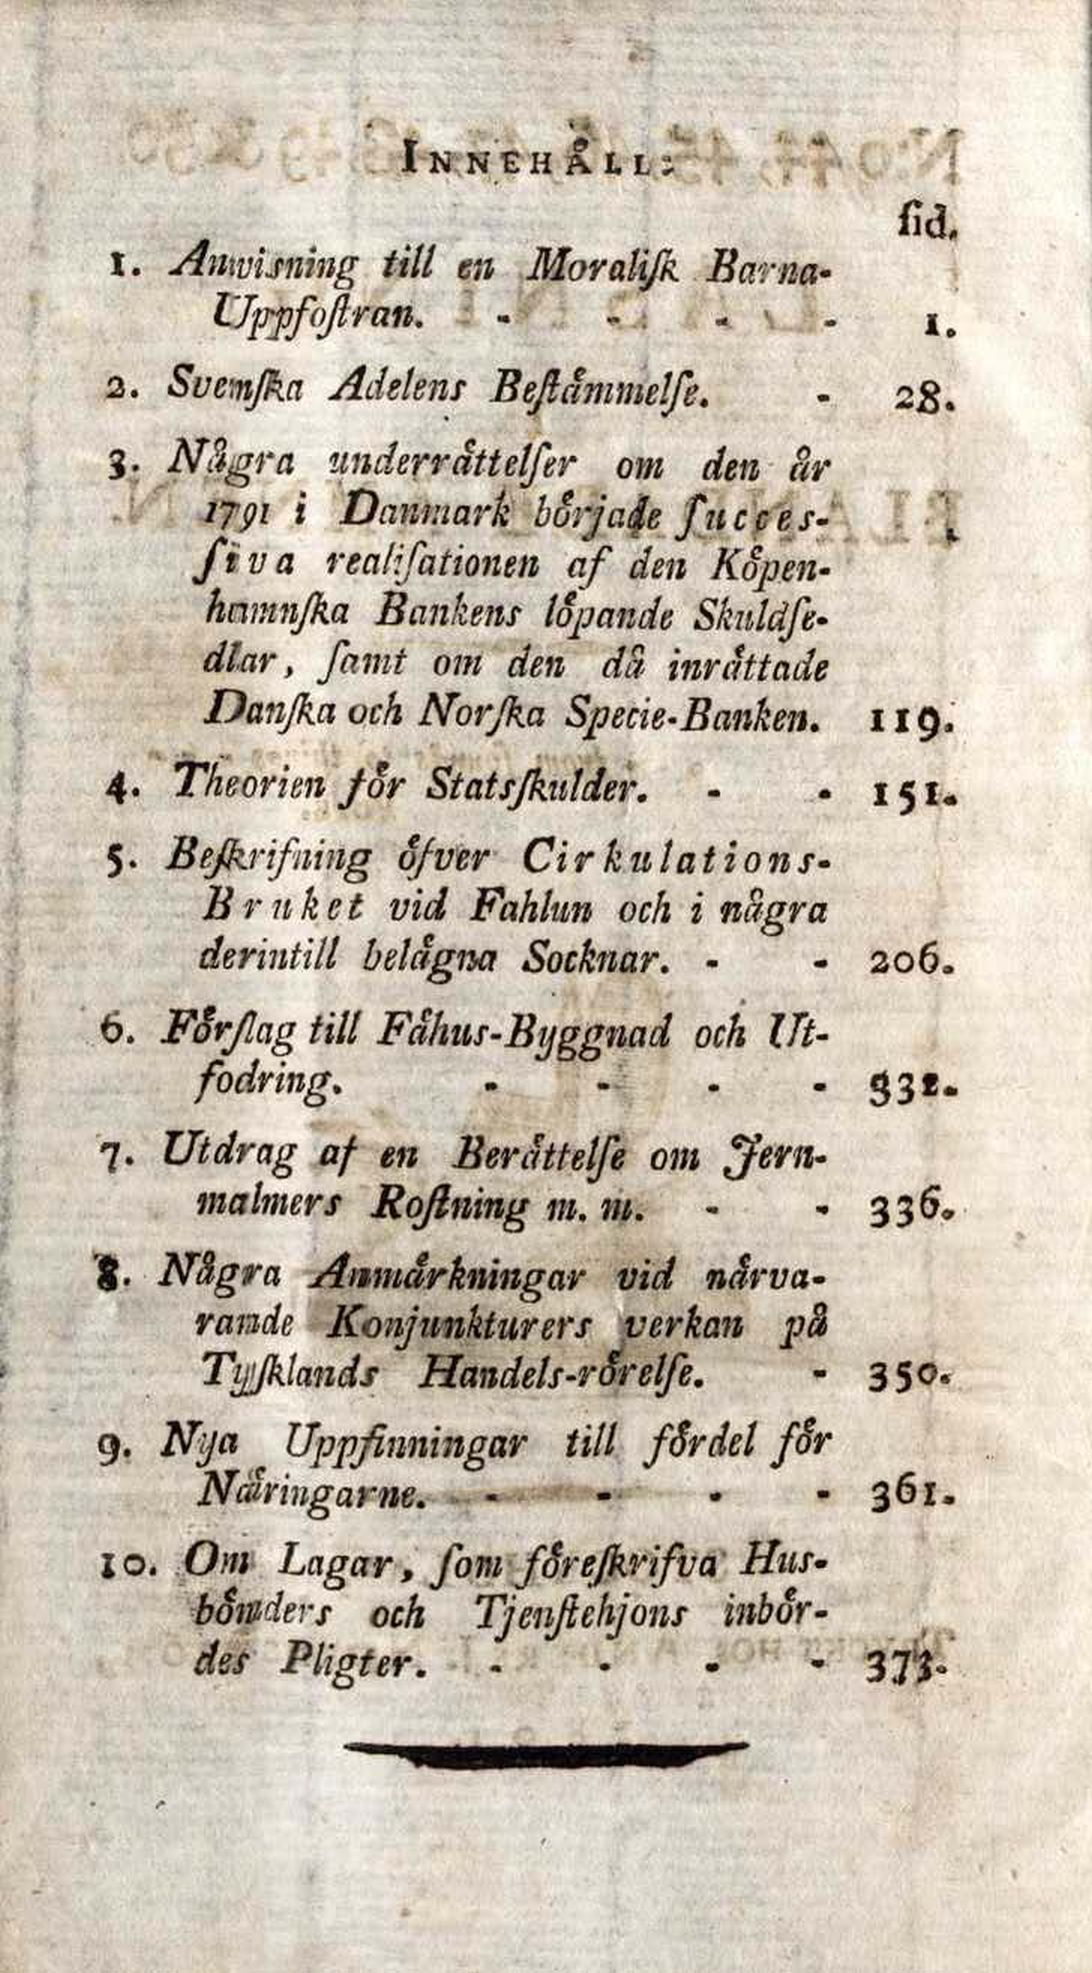 INNEHÅLL:
ſid.
1. Anwisning till en Moraliſk Barna-
Uppfoſtran. - - - - 1.
2. Svenſka Adelens Beſtåmmelſe. - 28.
3. Några underråttelſer om den år
1791 i Danmark började ſucces-
ſiva realiſationen af den Köpen-
hamnſka Bankens löpande Skuldſe-
dlar, ſamt om den då inråttade
Danſka och Norſka Specie-Banken. 119.
4. Theorien för Statsſkulder. - - 151.
5. Beſkrifning öfver Cirkulations-
Bruket vid Fahlun och i några
derintill belågna Socknar. - - 206.
6. Förſlag till Fåhus-Byggnad och Ut-
fodring. - - - - 332.
7. Utdrag af en Beråttelſe om Jern-
malmers Roſtning m. m. - - 336.
8. Några Anmårkningar vid nårva-
rande Konjunkturers verkan på
Tyſklands Handels-rörelſe. - 350.
9. Nya Uppfinningar till fördel för
Nåringarne. - - - - 361.
10. Om Lagar, ſom föreſkrifva Hus-
bönders och Tjenſtehjons inbör-
des Pligter. - - - - 373.